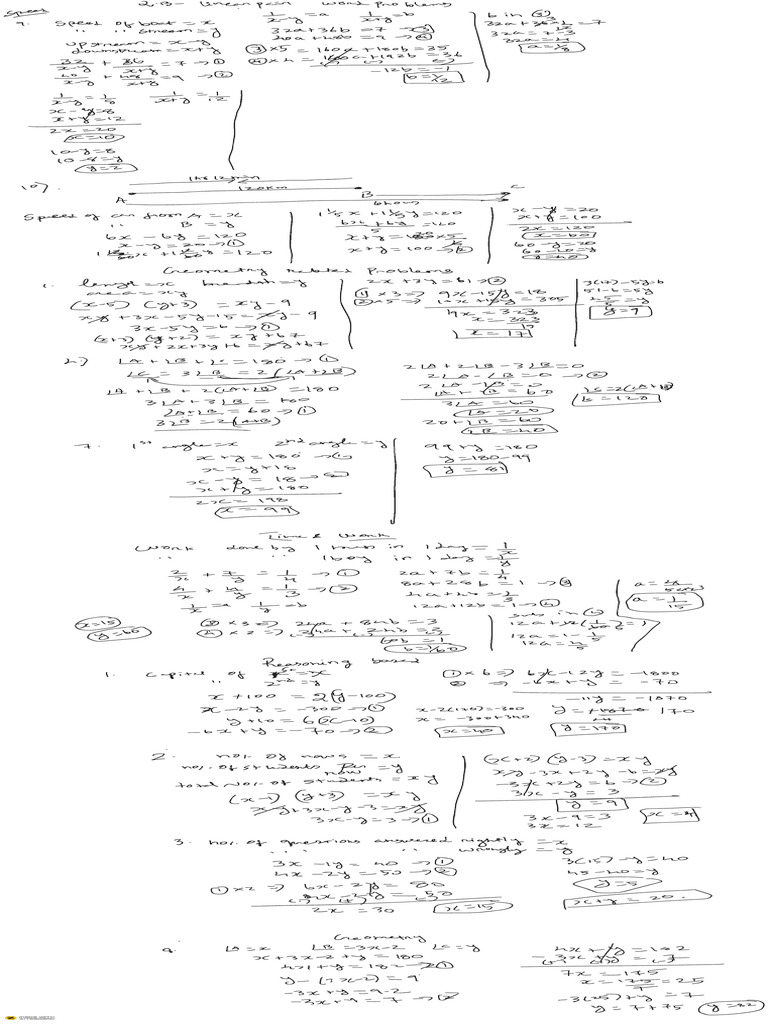 Speed
2.B - Linear pair Word Problems
9. Speed of boat = x
" " Stream = y
upstream = x-y
downstream = x+y
32/x-y + 36/x+y = 7 → ①
40/x-y + 48/x+y = 9 → ②
1/x-y = a 1/x+y = b
32a+36b = 7 → ③
40a+48b = 9 → ④
③ x5 = 160a+180b = 35
④ x4 = 160a+192b = 36
-12b = -1
b = 1/12
b in ③
32a = 7-3
32a = 4
a = 1/8
1/x-y = 1/8 1/x+y = 1/12
x-y=8
x+y=12
2x=20
x=10
10-y=8
10-8=y
y=2
10).
1hr 12 min
120km
A B C
6 hours
Speed of car from A = x
" B = y
6x - 6y = 120
x-y = 20 → ①
1 1/5 x + 1 1/5 y = 120
x+y = 100 → ②
x-y=20
x+y=100
2x=120
x=60
60-y=20
60-20=y
y=40
Geometry Related Problems
1. length = x breadth = y
area = xy
(x-5) (y+3) = xy-9
xy+3x-5y-15 = xy-9
3x-5y=6 → ①
(x+3) (y+2) = xy+67
xy+2x+3y+6 = xy+67
2x+3y=61 → ②
① x3 ⇒ 9x-15y=18
② x5 ⇒ 10x+15y=305
19x = 323
x = 323/19
x = 17
3(17)-5y=6
51-6=5y
45/5=y
y=9
∠A+∠B+∠C=180 → ①
∠C = 3∠B = 2(∠A+∠B)
∠A+∠B+2(∠A+∠B) = 180
3∠A+3∠B = 180
∠A+∠B = 60 → ①
3∠B = 2(∠A+∠B)
2∠A+2∠B-3∠B=0
2∠A-∠B=0 → ②
2∠A-∠B=0
∠A+∠B=60
3∠A=60
∠A=20
20+∠B=60
∠B=40
∠C=2(∠A+∠B)
∠C=120
7. 1st angle=x 2nd angle=y
x+y=180 → ①
x=y+18
x-y=18 → ②
x+y=180
2x=198
x=99
99+y=180
y=180-99
y=81
Time & Work
Work done by 1 man in 1 day = 1/x
" " 1 boy in 1 day = 1/y
2/x + 7/y = 1/4 → ①
4/x + 4/y = 1/3 → ②
1/x=a 1/y=b
2a+7b=1/4
8a+28b=1 → ③
4a+4b=1/3
12a+12b=1 → ④
③ x3 ⇒ 24a+84b=3
④ x2 ⇒ 24a+24b=2
60b=1
b=1/60
sub in ④
12a+12(1/60)=1
12a=1-1/5
12a=4/5
a=1/15
x=15
y=60
Reasoning based
1. Capital of 1st = x
" 2nd = y
x+100 = 2(y-100)
x-2y = -300 → ①
y+10 = 6(x-10)
-6x+y = -70 → ②
① x 6 ⇒ 6x-12y = -1800
② ⇒ -6x+y = -70
-11y = -1870
y = 170
y=170
x-2(170)=-300
x = -300+340
x=40
2. no. of rows = x
no. of students per row = y
total No. of students = xy
(x-1) (y+3) = xy
xy+3x-y-3=xy
3x-y=3 → ①
(x+2) (y-3) = xy
xy-3x+2y-6=xy
-3x+2y=6 → ②
3x-y=3
y=9
3x-9=3
3x=12
x=4
3. no. of questions answered rightly = x
" " " " wrongly = y
3x-1y=40 → ①
4x-2y=50 → ②
① x2 ⇒ 6x-2y=80
4x-2y=50
2x=30
x=15
3(15)-y=40
45-40=y
y=5
x+y=20.
Geometry
9. ∠A=x ∠B=3x-2 ∠C=y
x+3x-2+y=180
4x+y=182 → ①
y-(3x-2)=9
-3x+y=9-2
-3x+y=7 → ②
4x+y=182
-3x+y=7
7x=175
x=175/7=25
-3(25)+y=7
y=7+75
y=82